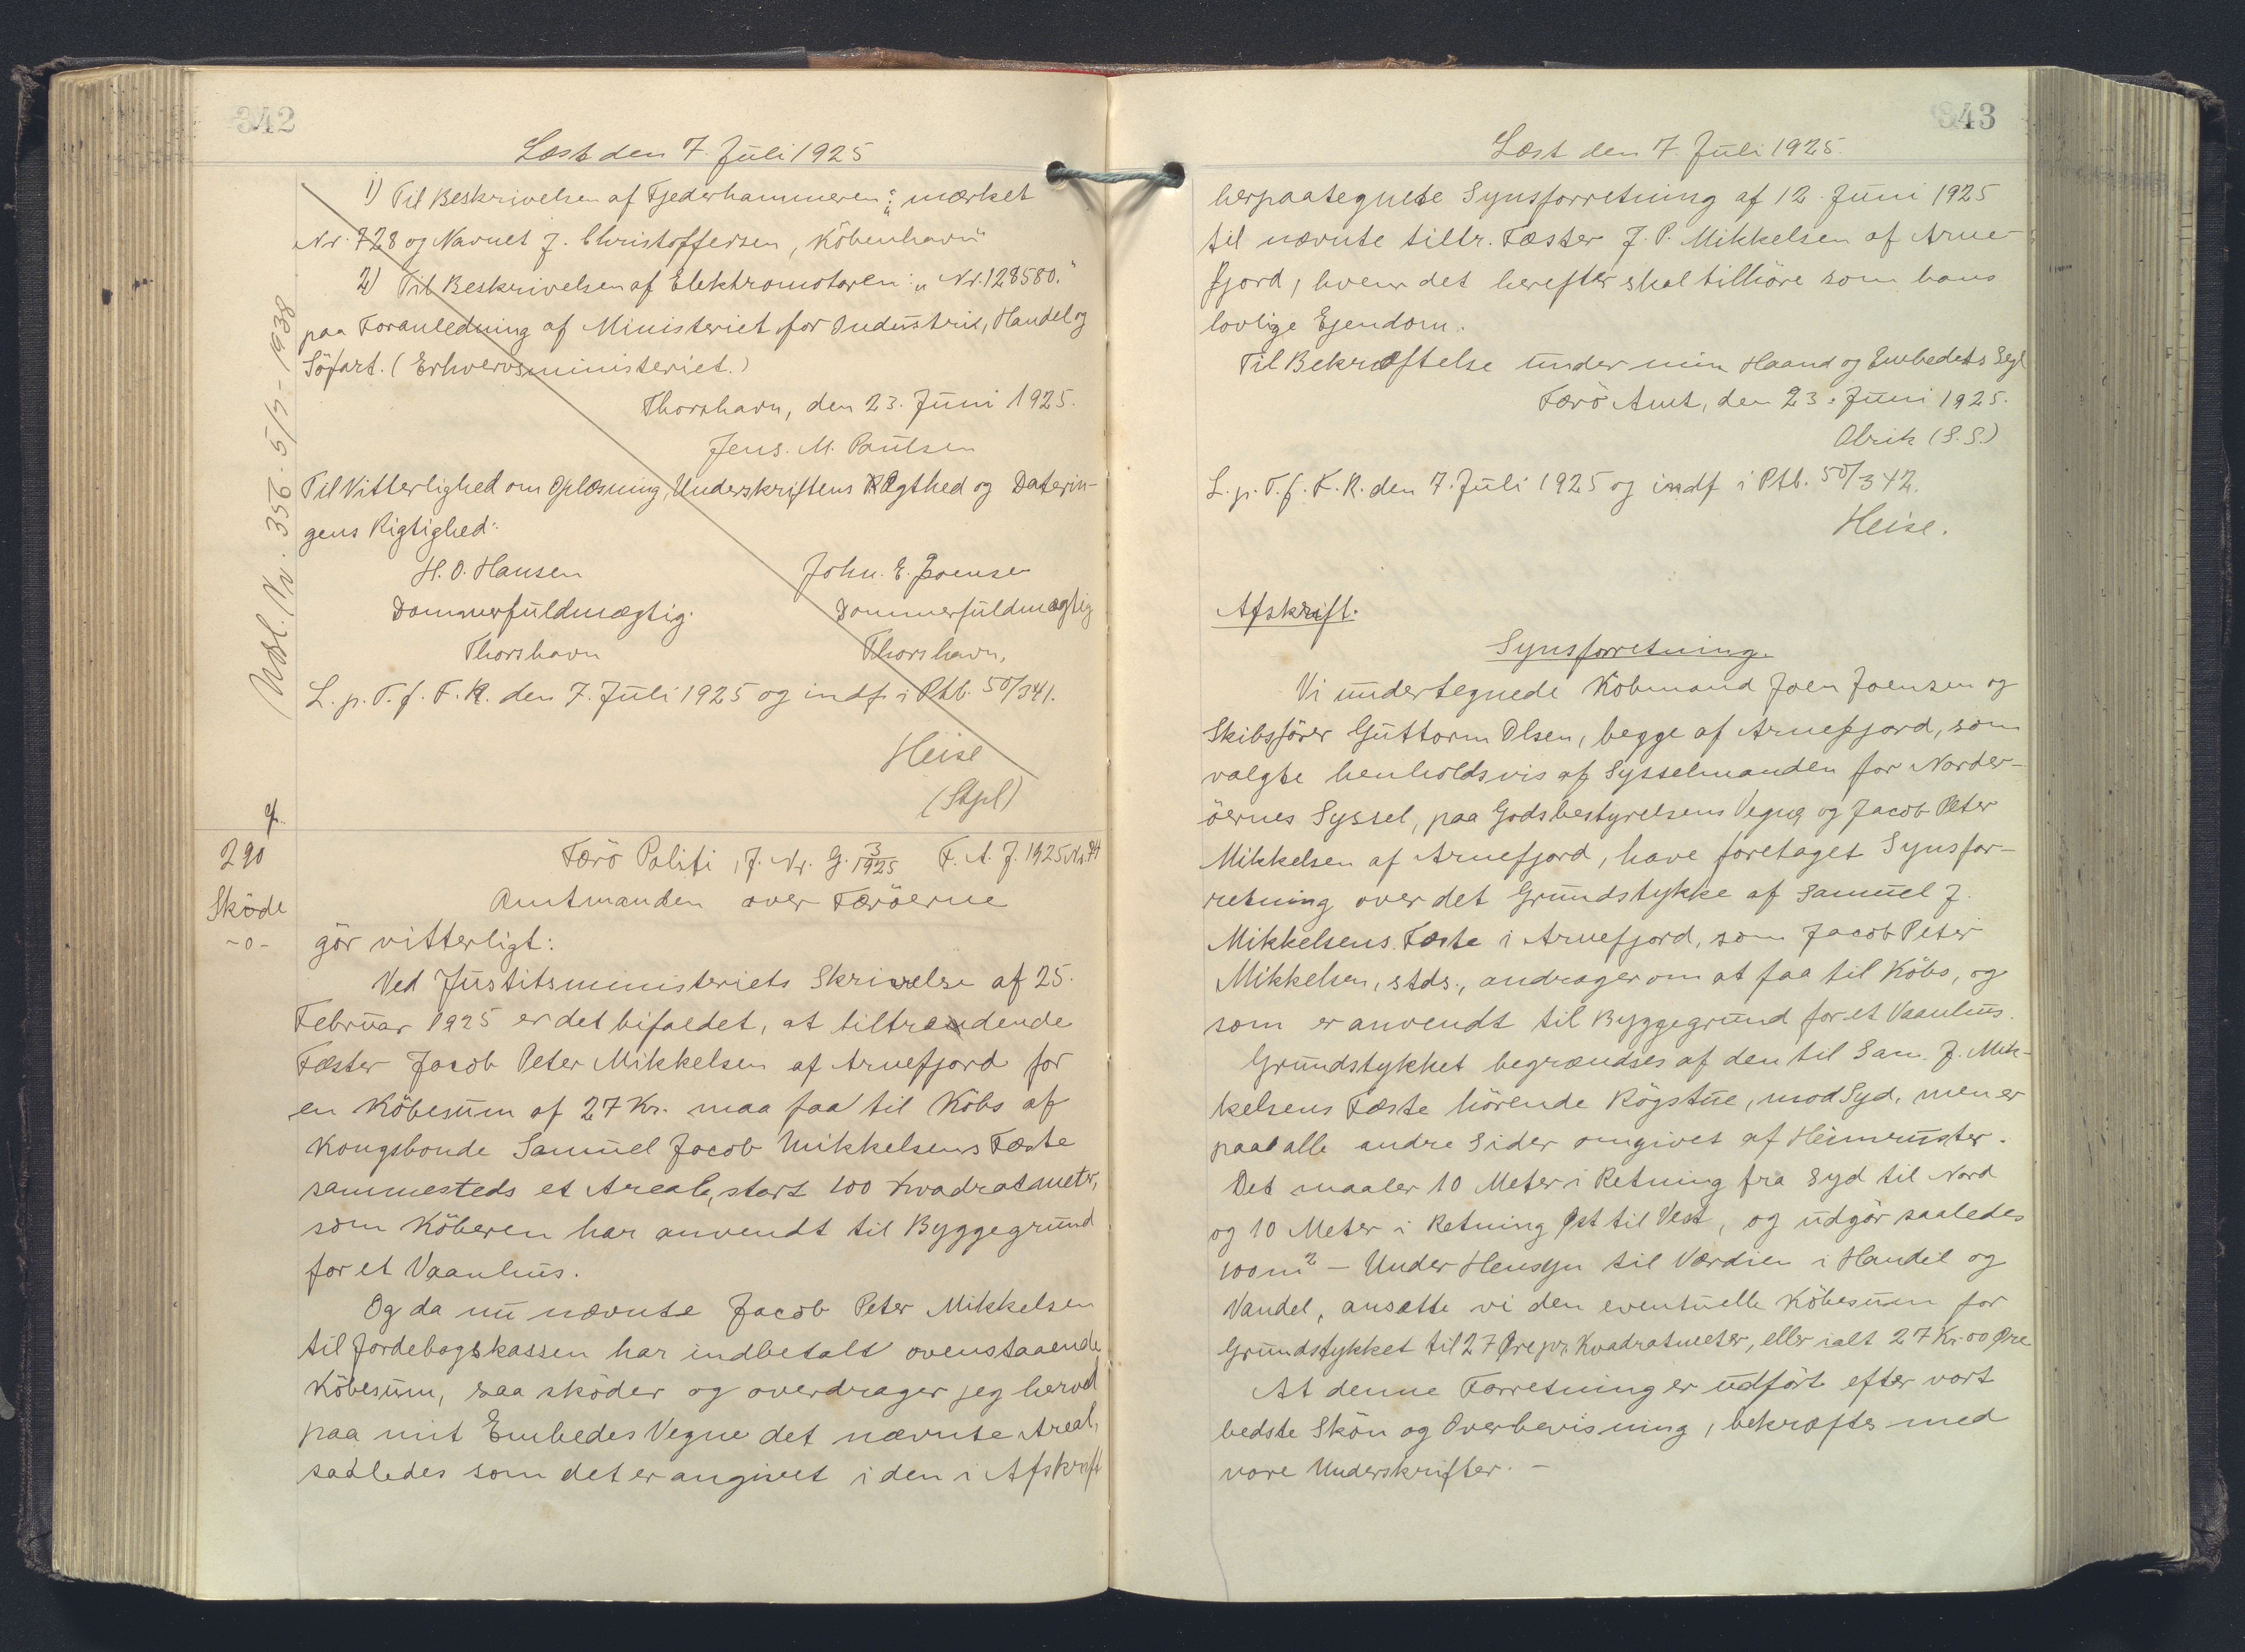 342
Læst den 7. Juli 1925
1) Til Beskrivelsen af Fjederhammeren: „mærket
Nr. 728 og Navnet J. Christoffersen, København“
2) Til Beskrivelsen af Elektromotoren: „Nr. 128580.“
paa Foranledning af Ministeriet for Industri, Handel og
Söfart. (Erhvervsministeriet.)
Thorshavn, den 23. Juni 1925.
Jens. M. Poulsen
Til Vitterlighed om Oplæsning, Underskriftens Ægthed og Daterin-
gens Rigtighed:
H. O. Hansen
John. E. Joensen
Dommerfuldmægtig.
Dommerfuldmægtig
Thorshavn
Thorshavn,
L. p. T. f. F. R. den 7. Juli 1925 og indf. i Ptb. 50/341.
Heise
(Stpl)
Udsl. Nr. 356. 5/7-1938
cfr.
290
Sköde
-o-
Færö Politi, J. Nr. G. 3/1925 F. A. J. 1925 Nr.
Amtmanden over Færöerne
gör vitterligt:
Ved Justitsministeriets Skrivelse af 25.
Februar 1925 er det bifaldet, at tiltrædende
Fæster Jacob Peter Mikkelsen af Arnefjord for
en Köbesum af 27 Kr. maa faa til Köbs af
Kongsbonde Samuel Jacob Mikkelsens Fæste
sammesteds et Areal, stort 100 Kvadratmeter,
som Köberen har anvendt til Byggegrund
for et Vaanhus.
Og da nu nævnte Jacob Peter Mikkelsen
til Jordebogskassen har indbetalt ovenstaaende
Köbesum, saa sköder og overdrager jeg herved
paa mit Embedes Vegne det nævnte Areal,
saaledes som det er angivet i den i Afskrift
343
Læst den 7. Juli 1925.
herpaategnede Synsforretning af 12. Juni 1925
til nævnte tiltr. Fæster J. P. Mikkelsen af Arne-
fjord, hvem det herefter skal tilhöre som hans
lovlige Ejendom.
Til Bekræftelse under min Haand og Embedets Segl
Færö Amt, den 23. Juni 1925.
Olrik (S. S.)
L. p. T. f. F. R. den 7. Juli 1925 og indf i Ptb. 50/342.
Heise.
Afskrift.
Synsforretning.
Vi undertegnede Köbmand Joen Joensen og
Skibsförer Guttorm Olsen, begge af Arnefjord, som
valgte henholdsvis af Sysselmanden for Norder-
öernes Syssel, paa Godsbestyrelsens Vegne og Jacob Peter
Mikkelsen af Arnefjord, have foretaget Synsfor-
retning over det Grundstykke af Samuel J.
Mikkelsens Fæste i Arnefjord, som Jacob Peter
Mikkelsen, stds., andrager om at faa til Köbs, og
som er anvendt til Byggegrund for et Vaanhus.
Grundstykket begrændses af den til Sam. J. Mik-
kelsens Fæste hörende Rögstue, mod Syd, men er
paa alle andre Sider omgivet af Heimruster.
Det maaler 10 Meter i Retning fra Syd til Nord
og 10 Meter i Retning Øst til Vest, og udgör saaledes
100 m² – Under Hensyn til Værdien i Handel og
Vandel, ansatte vi den eventuelle Köbesum for
Grundstykket til 27 Øre pr. Kvadratmeter, eller ialt 27 Kr. 00 Øre
At denne Forretning er udfört efter vort
bedste Skön og Overbevisning, bekræftes med
vore Underskrifter. –